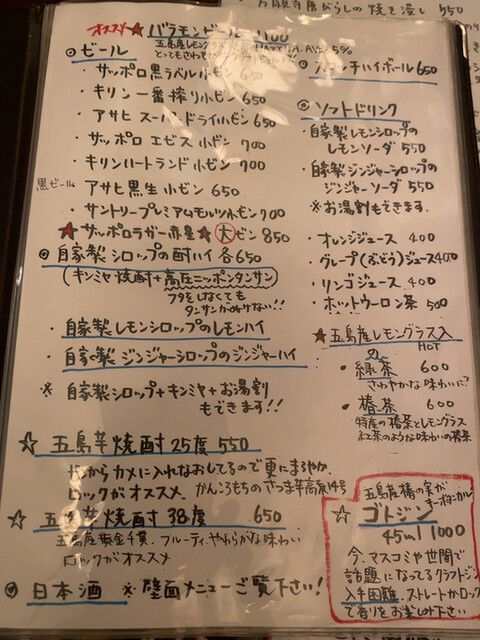 オススメ ★ バラモンビール 1100
五島産レモングラス
◎ ビール
・サッポロ黒ラベル小ビン 650
・キリン一番搾り小ビン 650
・アサヒ スーパードライ小ビン 650
・サッポロ エビス 小ビン 700
・キリンハートランド小ビン 700
黒ビール アサヒ黒生 小ビン 650
・サントリープレミアムモルツ小ビン 700
★ サッポロラガー赤星 ★ 大ビン 850
◎ 自家製シロップの酎ハイ 各650
(キンミヤ焼酎+高圧ニッポンタンサン)
フタをしなくても
タンサンがぬけない!!
・自家製レモンシロップのレモンハイ
・自家製ジンジャーシロップのジンジャーハイ
※ 自家製シロップ+キンミヤ+お湯割
もできます!!
☆ 五島芋焼酎 25度 550
からカメに入れなおしてるので更にまろやか、
ロックがオススメ、かんころもちのさつま芋高系14号
☆ 五島芋焼酎 38度 650
五島産黄金千貫、フルーティ、やわらかな味わい
ロックがオススメ
◎ 日本酒 ※ 壁面メニューご覧下さい!
の焼き浸し 550
ハイボール 650
◎ ソフトドリンク
・自家製レモンシロップの
レモンソーダ 550
・自家製ジンジャーシロップの
ジンジャーソーダ 550
※お湯割もできます。
・オレンジジュース 400
・グレープ(ぶどう)ジュース 400
・リンゴジュース 400
・ホットウーロン茶 500
★ 五島産レモングラス入
の HOT
・緑茶 600
さわやかな味わいに?
・椿茶 600
特産の椿茶とレモングラス
紅茶のような味わいの椿茶
五島産椿の実が
キーボタニカル
☆ ゴトジン
45ml 1000
今、マスコミや世間で
話題になってるクラフトジン
入手困難。ストレートかロック
で香りをお楽しみ下さい